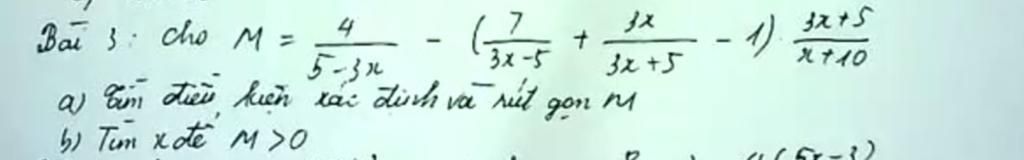 Bài 3: Cho M = 4/(5-3x) - (7/(3x-5) + 3x/(3x+5) - 1) . (3x+5)/(x+10)
a) Tìm điều kiện xác định và rút gọn M
b) Tìm x để M > 0